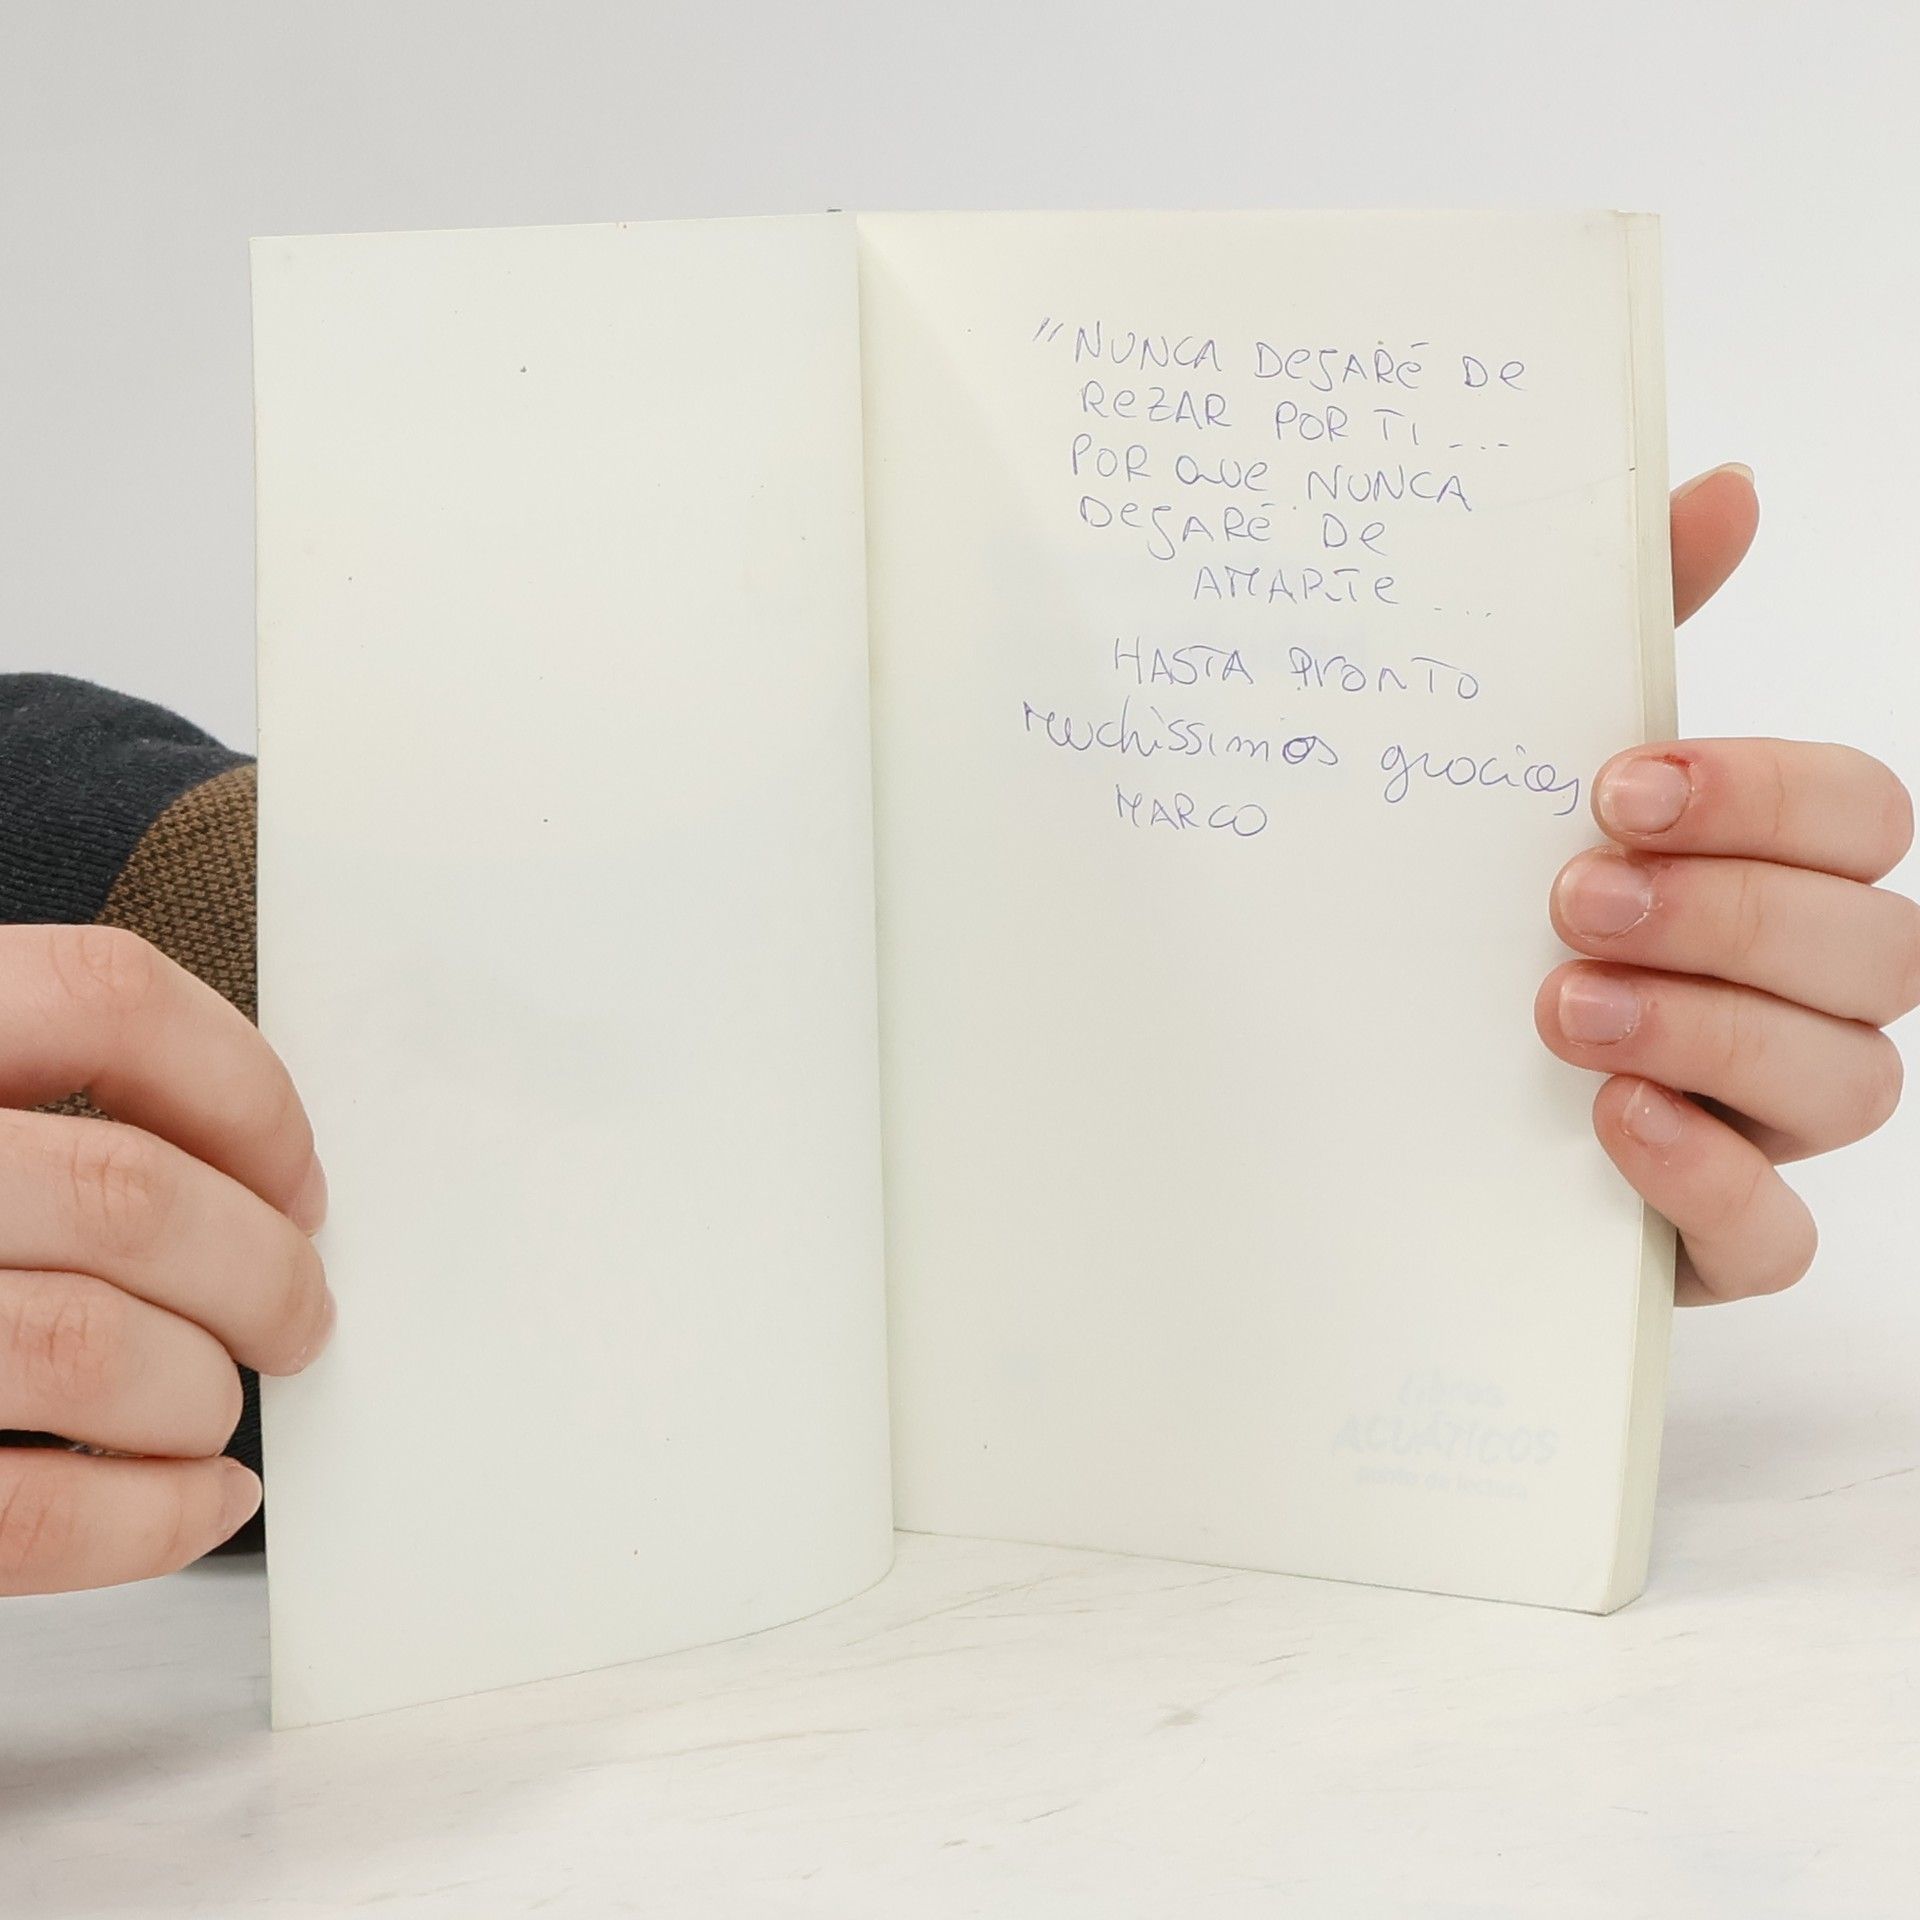 "NUNCA DEJARÉ DE
REZAR POR TI ...
POR QUE NUNCA
DEJARÉ DE
AMARTE ...
HASTA PRONTO
Muchissimas gracias
MARCO
libros
ACUÁTICOS
punto de lectura